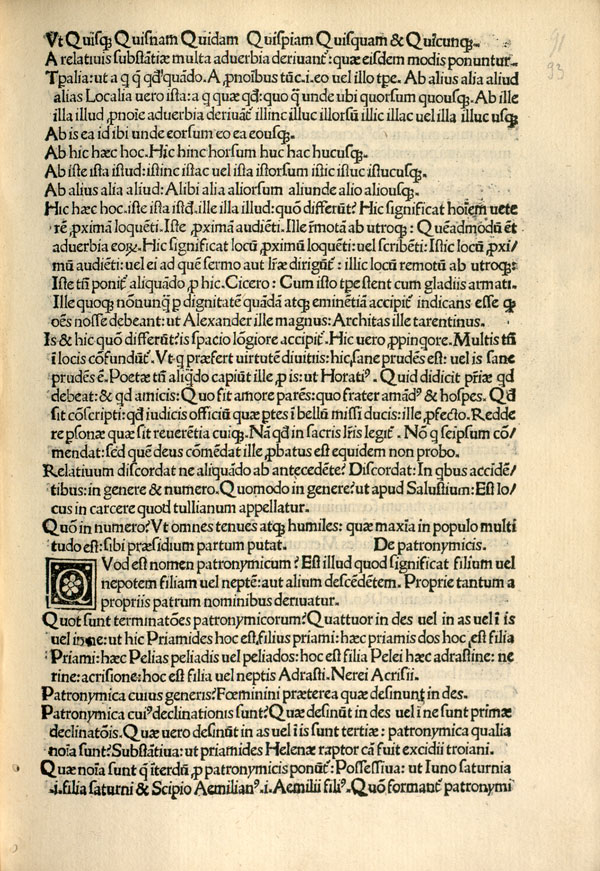 Vt Quisqꝫ Quisnam Quidam Quispiam Quisquam & Quicunqꝫ.
A relatiuis substãtiæ multa aduerbia deriuant᷑: quæ eisdem modis ponuntur.
Tpalia: ut a q q̃ qđ quãdo. A ꝓnoibus tũc. i. eo uel illo tpe. Ab alius alia aliud
alias Localia uero ista: a q quæ qđ: quo q̃ unde ubi quorsum quousqꝫ. Ab ille
illa illud ꝓnoie aduerbia deriuãt᷑ illinc illuc illorsũ illic illac uel illa illuc usqꝫ
Ab is ea id ibi unde eorsum eo ea eousqꝫ.
Ab hic hæc hoc. Hic hinc horsum huc hac hucusqꝫ.
Ab iste ista istud: istinc istac uel ista istorsum istic istuc istucusqꝫ.
Ab alius alia aliud: Alibi alia aliorsum aliunde alio aliousqꝫ.
Hic hæc hoc. iste ista istđ. ille illa illud: quõ differũt? Hic significat hoiẽm uete
rẽ ꝓximã loquẽti. Iste ꝓximã audiẽti. Ille r̃motã ab utroqꝫ: Quẽadmodũ et
aduerbia eoꝝ. Hic significat locũ ꝓximũ loquẽti: uel scribẽti: Istic locũ ꝓxi/
mũ audiẽti: uel ei ad quẽ sermo aut lr̃æ dirigũt᷑: illic locũ remotũ ab utroqꝫ:
Iste tñ ponit᷑ aliquãdo ꝓ hic. Cicero: Cum isto tpe stent cum gladiis armati.
Ille quoqꝫ nõnunqꝫ ꝓ dignitatẽ quãdã atqꝫ eminẽtiã accipit᷑ indicans esse qꝫ
oẽs nosse debeant: ut Alexander ille magnus: Architas ille tarentinus.
Is & hic quõ differũt? is spacio lõgiore accipit᷑. Hic uero ꝓpinqore. Multis tñ
ĩ locis cõfundũt᷑. Vt q præfert uirtutẽ diuitiis: hic, sane prudẽs est: uel is sane
prudẽs ẽ. Poetæ tñ aliqđo capiũt ille ꝓ is: ut Horatiꝰ. Quid didicit pr̃iæ qđ
debeat: & qđ amicis: Quo sit amore parẽs: quo frater amãdꝰ & hospes. Qđ
sit cõscripti: qđ iudicis officiũ quæ ptes ĩ bellũ missi ducis: ille ꝓfecto. Redde
re psonæ quæ sit reuerẽtia cuiqꝫ. Nã qđ in sacris lr̃is legit᷑. Nõ q seipsum cõ/
mendat: sed quẽ deus cõmẽdat ille ꝓbatus est equidem non probo.
Relatiuum discordat ne aliquãdo ab antecedẽte? Discordat: In qbus accidẽ/
tibus: in genere & numero. Quomodo in genere? ut apud Salustium: Est lo/
cus in carcere quod tullianum appellatur.
Quõ in numero? Vt omnes tenues atqꝫ humiles: quæ maxĩa in populo multi
tudo est: sibi præsidium partum putat. De patronymicis.
QVod est nomen patronymicum? Est illud quod significat filium uel
nepotem filiam uel neptẽ: aut alium descẽdẽtem. Proprie tantum a
propriis patrum nominibus deriuatur.
Quot sunt terminatões patronymicorum? Quattuor in des uel in as uel ĩ is
uel in ne: ut hic Priamides hoc est, filius priami: hæc priamis dos hoc est filia
Priami: hæc Pelias peliadis uel peliados: hoc est filia Pelei hæc adrastine: ne
rine: acrisione: hoc est filia uel neptis Adrasti. Nerei Acrisii.
Patronymica cuius generis? Fœminini præterea quæ desinunt in des.
Patronymica cuiꝰ declinationis sunt? Quæ desinũt in des uel ĩ ne sunt primæ
declinatõis. Quæ uero desinũt in as uel ĩ is sunt tertiæ: patronymica qualia
noĩa sunt? Substãtiua: ut priamides Helenæ raptor cã fuit excidii troiani.
Quæ noĩa sunt q ĩterdũ ꝓ patronymicis ponũt᷑: Possessiua: ut Iuno saturnia
.i. filia saturni & Scipio Aemilianꝰ. i. Aemilii filiꝰ. Quõ formant᷑ patronymi